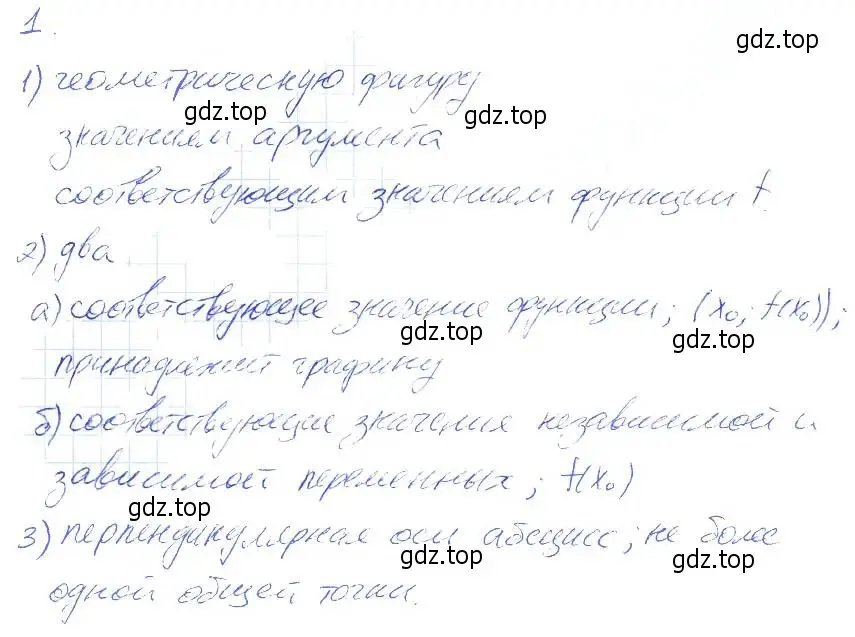 1.
1) геометрическую фигуру
значениям аргумента
соответствующим значениям функции f.
2) два
а) соответствующее значение функции; (x₀; f(x₀));
принадлежит графику
б) соответствующие значения независимой и
зависимой переменных; f(x₀)
3) перпендикулярная оси абсцисс; не более
одной общей точки.
gdz.top
gdz.top
gdz.top
gdz.top
gdz.top
gdz.top
gdz.top
gdz.top